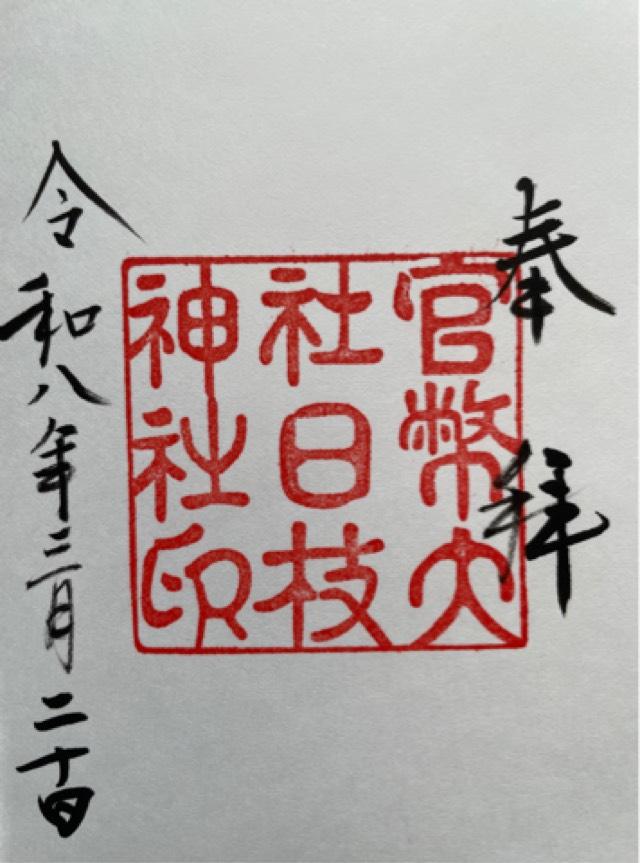 奉拝
官幣大
社日枝
神社印
令和八年三月二十日